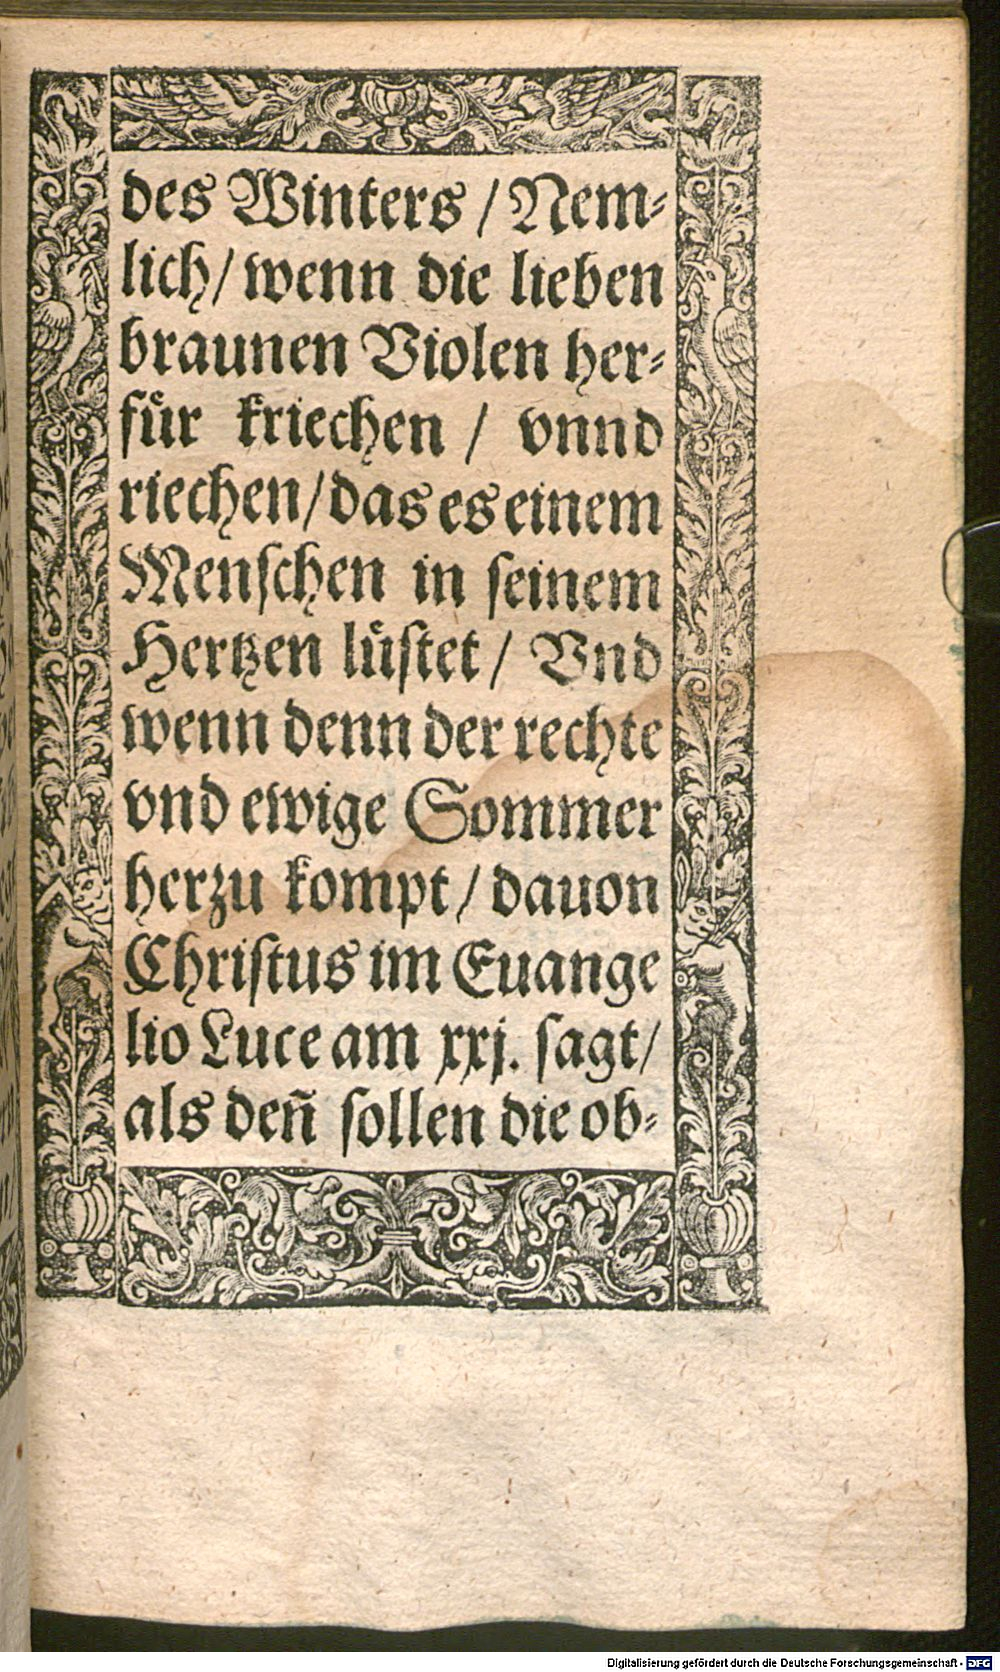 des Winters / Nem⸗
lich / wenn die lieben
braunen Violen her⸗
fuͤr kriechen / vnnd
riechen / das es einem
Menſchen in ſeinem
Hertzen luͤſtet / Vnd
wenn denn der rechte
vnd ewige Sommer
herzu kompt / dauon
Chriſtus im Euange
lio Luce am xxj. ſagt /
als deñ ſollen die ob⸗
Digitalisierung gefördert durch die Deutsche Forschungsgemeinschaft - DFG